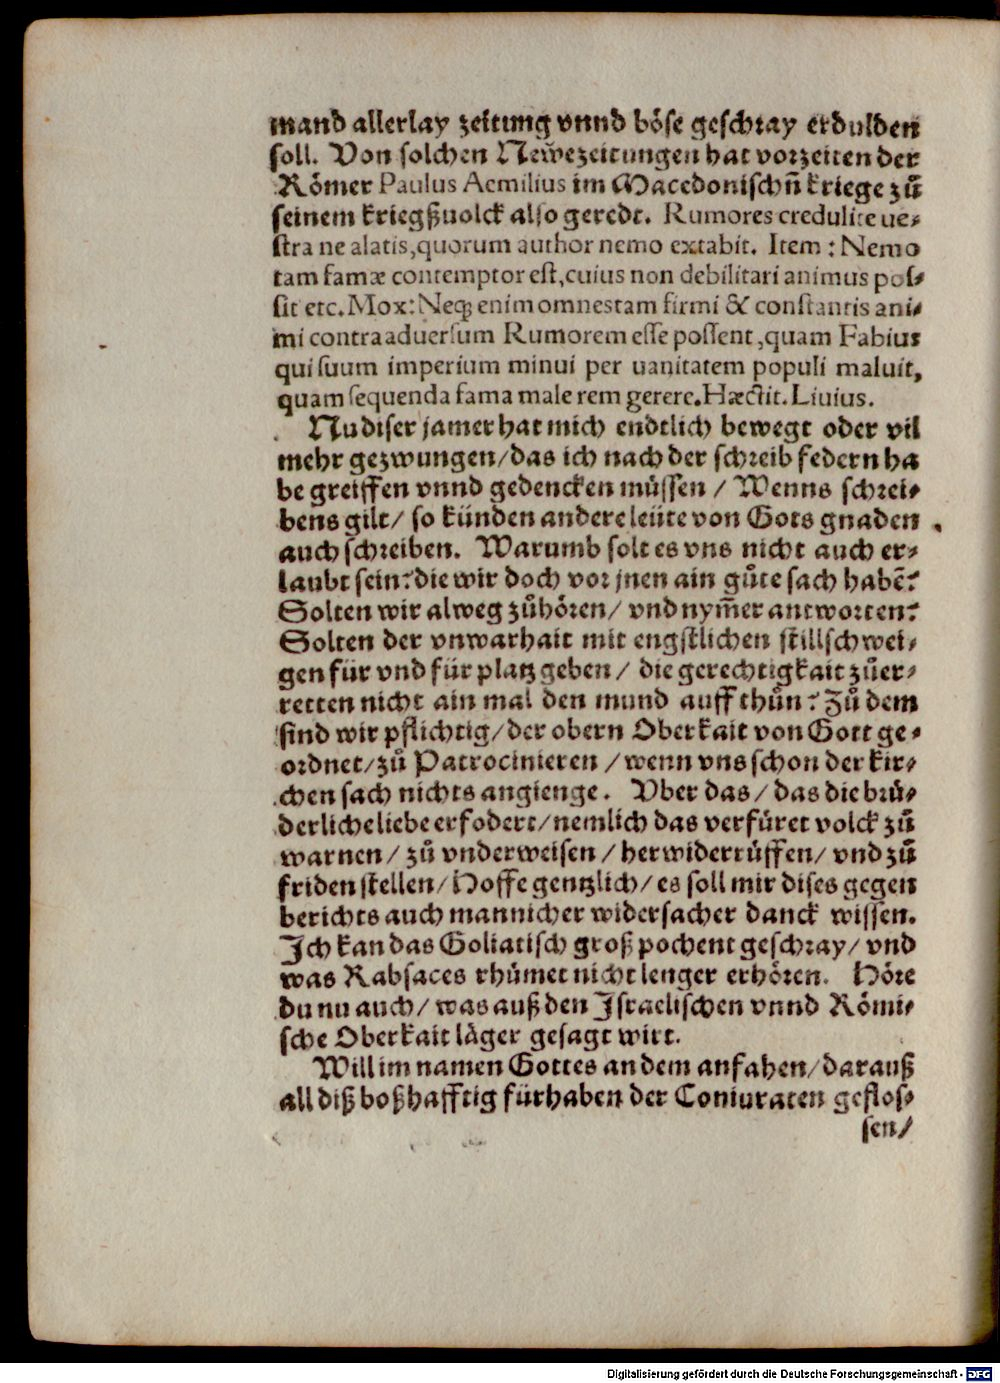 mand allerlay zeitung vnnd böse geschray erdulden
soll. Von solchen Newezeitungen hat vorzeiten der
Römer Paulus Aemilius im Macedonischñ kriege zů
seinem kriegßuolck also geredt. Rumores credulite ue⸗
stra ne alatis, quorum author nemo extabit. Item: Nemo
tam famæ contemptor est, cuius non debilitari animus pos⸗
sit etc. Mox: Neq; enim omnes tam firmi & constantis ani⸗
mi contra aduersum Rumorem esse possent, quam Fabius
qui suum imperium minui per uanitatem populi maluit,
quam sequenda fama male rem gerere. Hæc Tit. Liuius.
Nu diser jamer hat mich endtlich bewegt oder vil
mehr gezwungen/ das ich nach der schreib federn ha
be greiffen vnnd gedencken müssen / Wenns schrei⸗
bens gilt/ so künden andere leüte von Gots gnaden
auch schreiben. Warumb solt es vns nicht auch er⸗
laubt sein? die wir doch vor jnen ain gůte sach habē?
Solten wir alweg zůhören/ vnd nym̃er antworten?
Solten der vnwarhait mit engstlichen stillschwei⸗
gen für vnd für platz geben / die gerechtigkait zůer⸗
retten nicht ain mal den mund auff thůn? Zů dem
sind wir pflichtig/ der obern Oberkait von Gott ge⸗
ordnet/ zů Patrocinieren / wenn vns schon der kir⸗
chen sach nichts angienge. Vber das / das die brü⸗
derliche liebe erfodert/ nemlich das verfüret volck zů
warnen/ zů vnderweisen / herwiderrüffen/ vnd zů
friden stellen/ Hoffe gentzlich/ es soll mir dises gegen
berichts auch mannicher widersacher danck wissen.
Ich kan das Goliatisch groß pochent geschray/ vnd
was Rabsaces rhümet nicht lenger erhören. Höre
du nu auch/ was auß den Israelischen vnnd Römi⸗
sche Oberkait läger gesagt wirt.
Will im namen Gottes an dem anfahen/ darauß
all diß boßhafftig fürhaben der Coniuraten geflos⸗
sen/
Digitalisierung gefördert durch die Deutsche Forschungsgemeinschaft - DFG